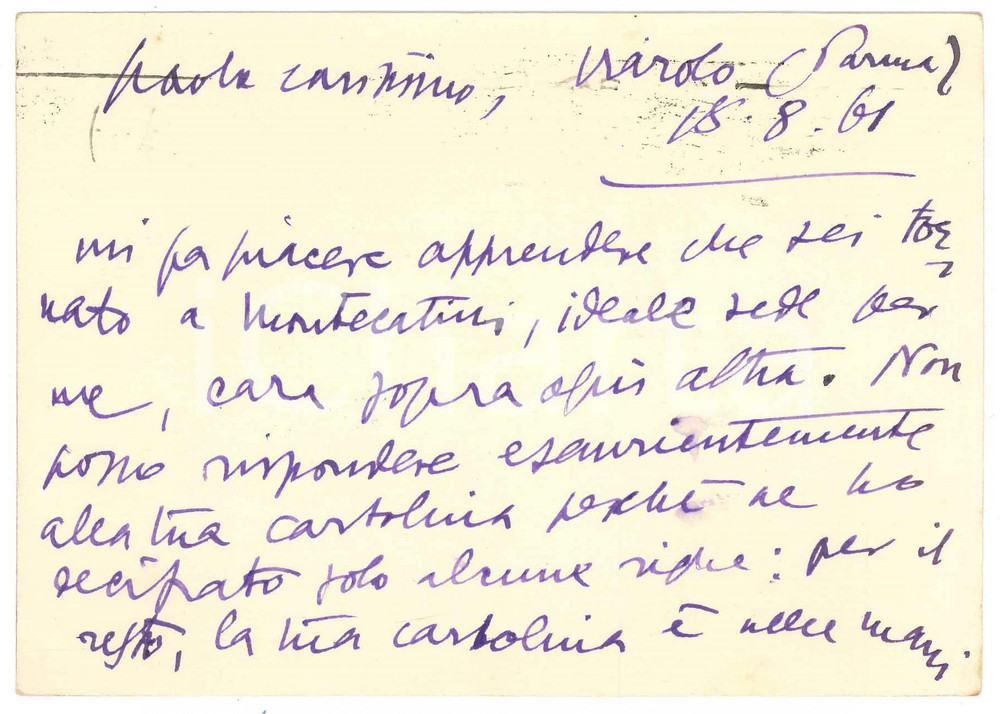 paolo carissimo, Viarolo (Parma)
18.8.61
mi fa piacere apprendere che sei tor
nato a Montecatini, ideale sede per
me, cara sopra ogni altra. Non
posso rispondere esaurientemente
alla tua cartolina perché ne ho
decifrato solo alcune righe: per il
resto, la tua cartolina è nelle mani